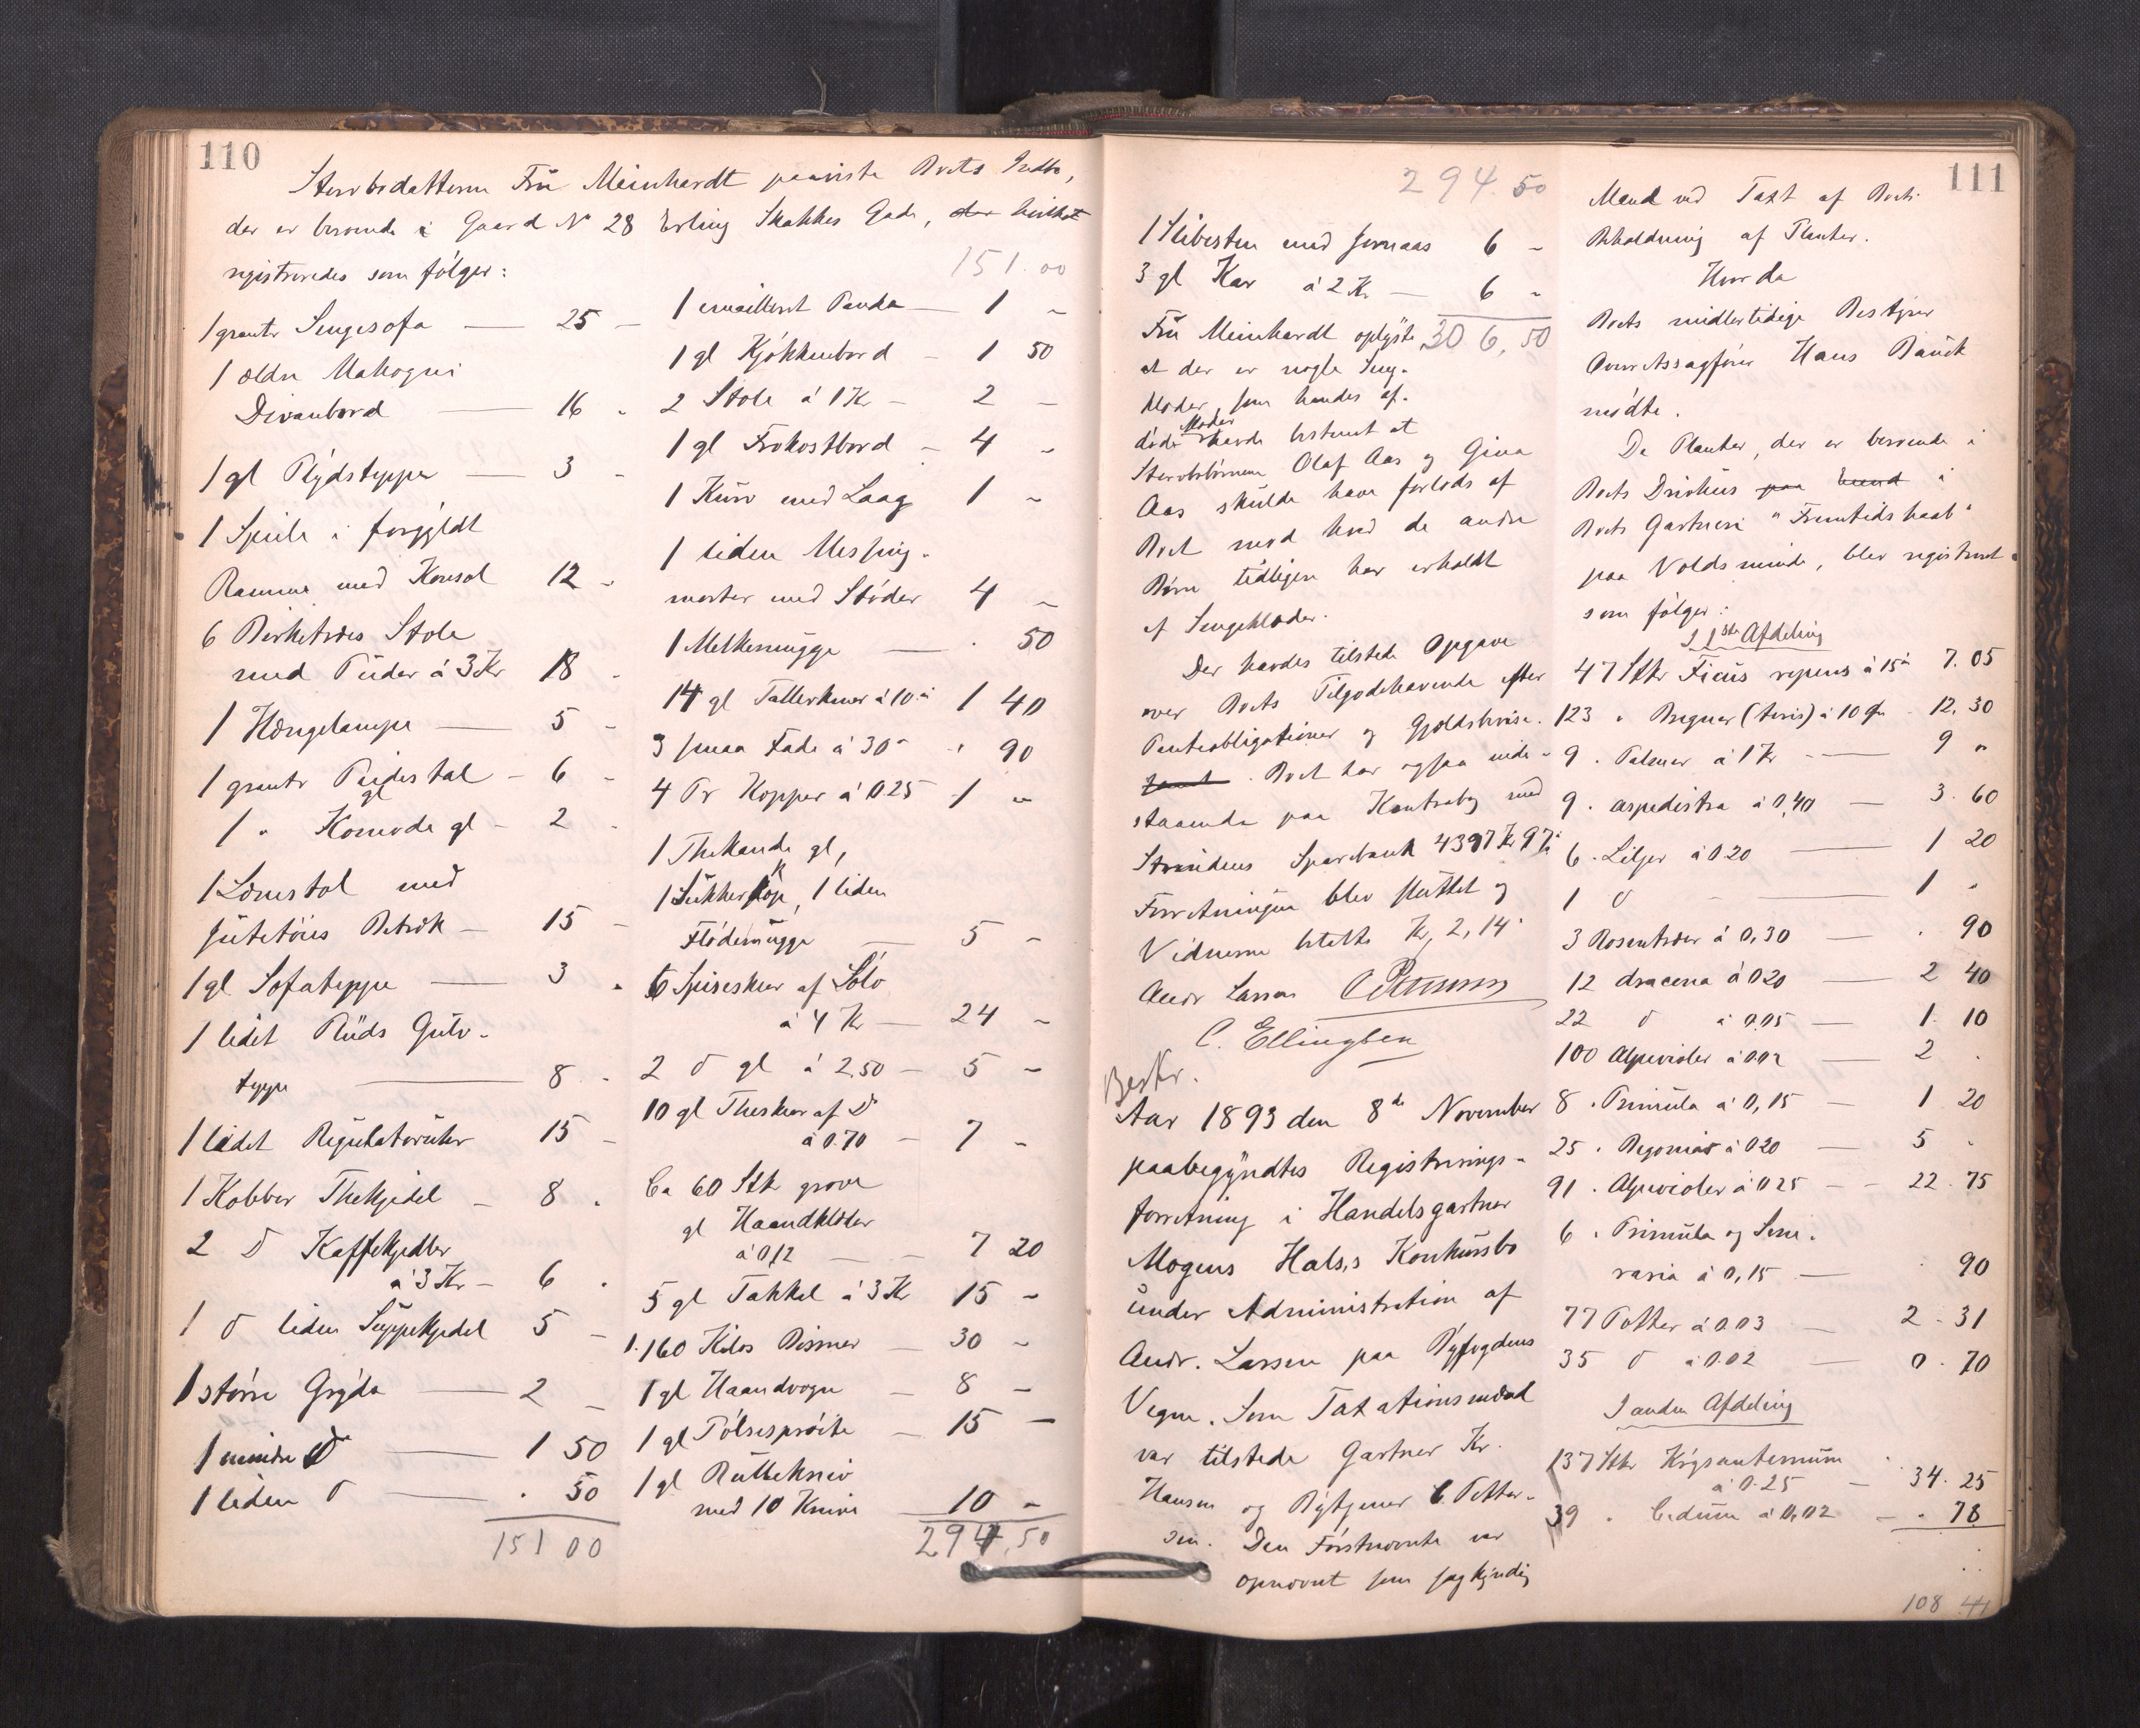 110
Stervbodatteren Frü Meinhardt paaviste Boets Indbo,
der er beroende i Gaard No 28 Erling Skakkes Gade, der hvilket
registreredes som følger:
1 grønt Sengesofa — 25 -
1 ældre Mahogni
Divanbord — 16 -
1 gl Plydsteppe — 3 -
1 Speile i forgyldt
Ramme med Konsol 12 -
6 Birketræes Stole
med Püder á 3 Kr 18 -
1 Hængelampe — 5 -
1 Pidestal — 6 -
1 " Komode gl - 2 -
1 Lænestol med
Betræk — 15 -
1 gl Sofateppe — 3 -
1 lidet Gulv-
teppe — 8 -
1 lidet Regülatorühr 15 -
1 Kobber Thekjedel — 8 -
2 d Kaffekjedler
á 3 Kr — 6 -
1 d liden Süppekjedel 5 -
1 større Gryde — 2 -
1 mindre d — 1 50
1 liden d — . 50
151 00
151.00
1 emailleret Pande — 1 -
1 gl Kjøkkenbord - 1 50
2 Stole á 1 Kr - 2 -
1 gl Frokostbord - 4 -
1 Kürv med Laag 1 -
1 liden Messing-
morter med Støder 4 -
1 Melkemügge — . 50
14 gl Tallerkener á 10 ø 1 40
3 smaa Fade á 30 " . 90
4 Pr Kopper á 0.25 - 1 -
1 Thekande gl,
1 Sükkerkop, 1 liden
Flødemügge — 5 -
6 Spiseskeer af Sølv
á 4 Kr — 24 -
2 d gl á 2.50 — 5 -
10 gl Theskeer af d
á 0.70 - 7 -
Ca 60 Stk grove
gl Haandklæder
á 0,12 — 7 20
5 gl Takkel á 3 Kr 15 -
1. 160 Kilos Bismer — 30 -
1 gl Haandvogn — 8 -
1 gl Pølsesprøite — 15 -
1 gl Rüllekniv
med 10 Knive 10 -
294,50
111
294.50
1 Slibesten med Jernaas 6 -
3 gl Kar á 2 Kr — 6 -
306,50
Frü Meinhardt oplyste
at der er nogle Seng-
klæder, som hendes af-
døde Moder havde bestemt at
Stervbobørnene Olaf Aas og Gina
Aas skülde have forlods af
Boet mod hvad de andre
Børn tidligere har erholdt
af Sengeklæder.
Der havdes tilstede Opgave
over Boets Tilgodehavende efter
Panteobligationer og Gjeldsbevise.
samt. Boet har ogsaa inde-
staaende paa Kontrabog med
Strindens Sparebank 4397 Kr 97 ø
Forretningen blev sluttet og
Vidnerne betalte Kr, 2,14.
Andr Larsen
C. Ellingsen
Beskr.
Aar 1893 den 8de November
paabegyndtes Registrerings-
forretning i Handelsgartner
Mogens Hals,s Konkürsbo
under Administration af
Andr. Larsen paa Byfogdens
Vegne. Som Taxationsmænd
var tilstede Gartner Kr.
Hansen og Bytjener C. Petter-
sen. Den Førstnævnte var
opnævnt som sagkyndig
Mand ved Taxt af Boets
Beholdning af Planter.
Hvorda
Boets midlertidige Bestyrer
Overretssagfører Hans Bauck
mødte.
De Planter, der er beroende i
Boets Drivhus paa i
Boets Gartneri "Fremtidshaab"
paa Voldsminde, blev registreret
som følger:
I 1ste Afdeling
47 Stkr Ficüs repens á 15 ø 7.05
123 " Bregner (teris) á 10 Øre 12.30
9 . Palmer á 1 Kr — 9 "
9 . aspedistra á 0,40 — 3.60
6 . Liljer á 0.20 — 1 20
1 d — 1 .
3 Rosentræer á 0,30 — . 90
12 dracena á 0.20 — 2 40
22 d á 0.05 — 1. 10
100 Alpevioler á 0.02 — 2 .
8 . Primüla á 0,15 — 1 20
25 . Begonias á 0.20 — 5 -
91 . Alpevioler á 0.25 — 22.75
6 . Primüla og Sine-
raria á 0,15 — . 90
77 Potter á 0.03 — 2.31
35 d á 0.02 — 0.70
I anden Afdeling
137 Stkr Krysantemüm
á 0.25 — 34.25
39 . Cedüm á 0,02 — . 78
108 41